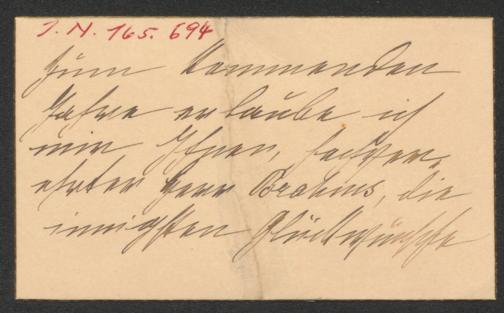 I. N. 165.694
Zum kommenden
Jahre erlaube ich
mir Ihnen, hochver-
ehrter Herr Brahms, die
innigsten Glückwünsche